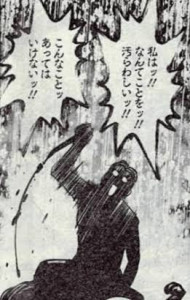 私はッ!!
なんてことをッ!!
汚らわしいッ!!
こんなことッ
あっては
いけないッ!!